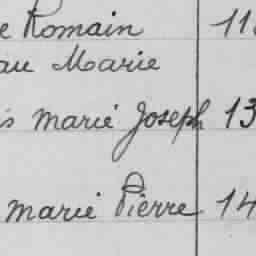 e Romain 11
au Marie
is marie Joseph 13
marie Pierre 14